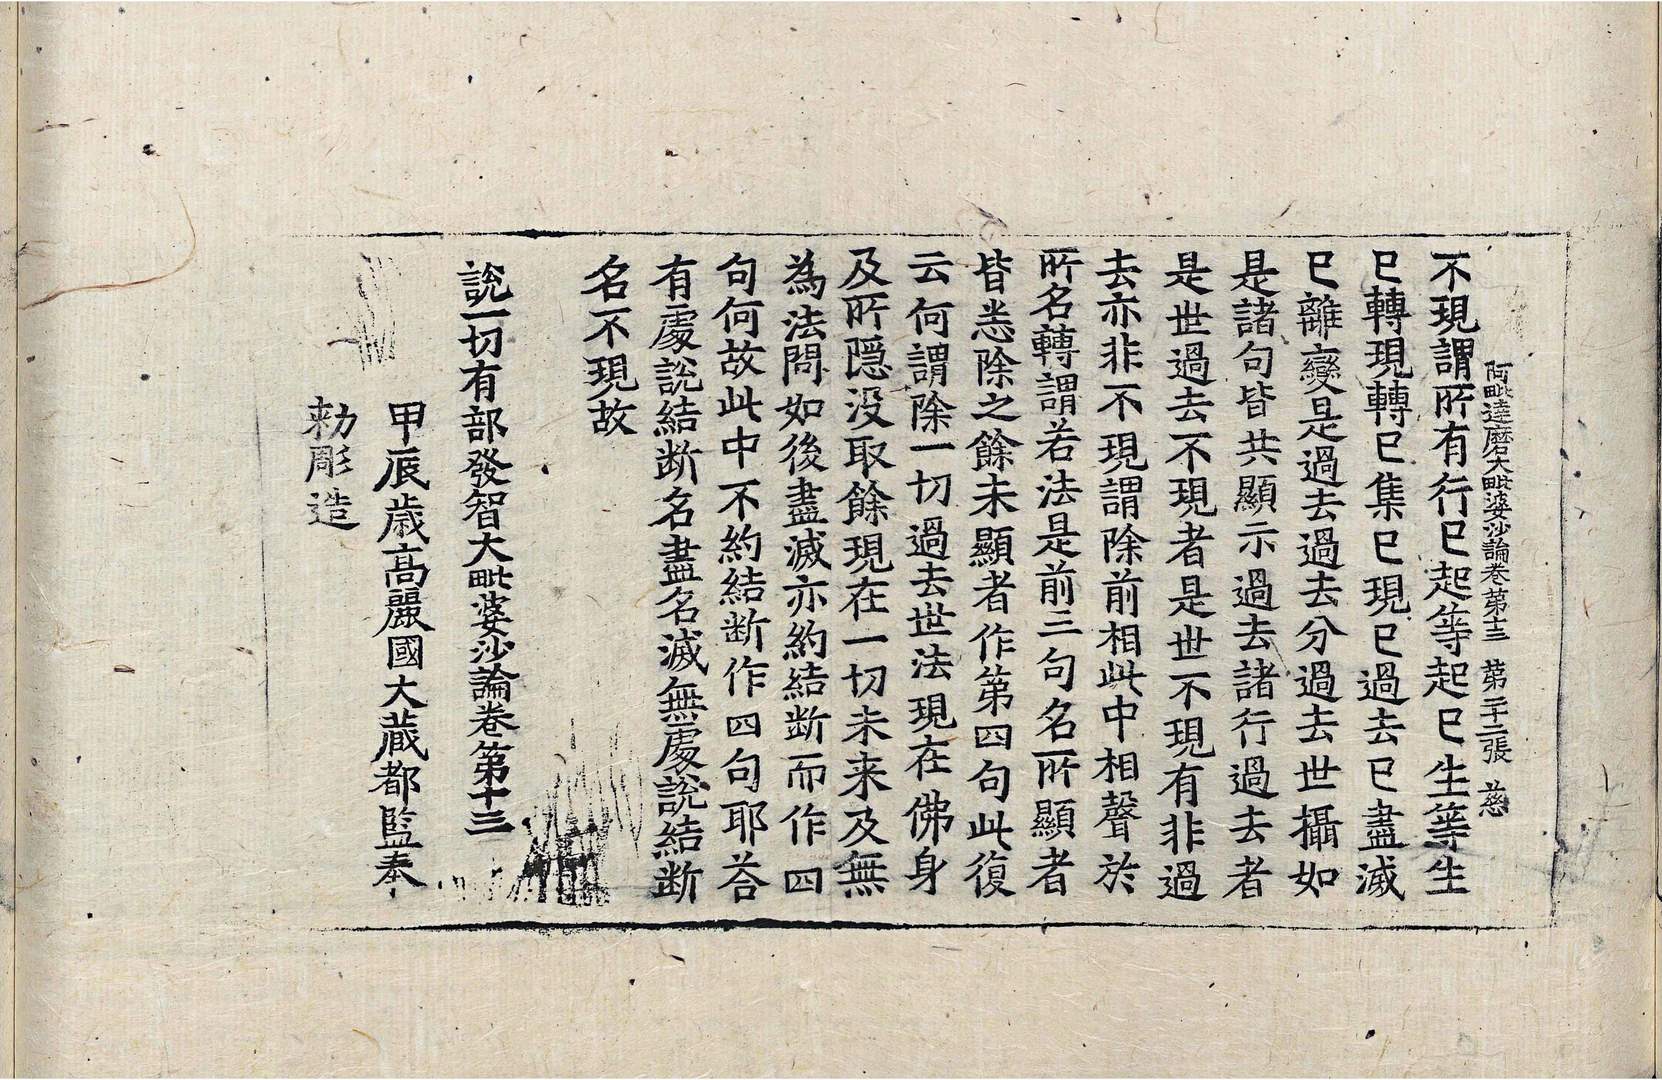 阿毗達磨大毗婆沙論卷第十三 第二十二張 慈
不現謂所有行已起等起已生等生
已轉現轉已集已現已過去已盡滅
已離變是過去過去分過去世攝如
是諸句皆共顯示過去諸行過去者
是世過去不現者是世不現有非過
去亦非不現謂除前相此中相聲於
所名轉謂若法是前三句名所顯者
皆悉除之餘未顯者作第四句此復
云何謂除一切過去世法現在佛身
及所隱没取餘現在一切未来及無
為法問如後盡滅亦約結断而作四
句何故此中不約結断作四句耶荅
有處說結断名盡名滅無處說結断
名不現故
說一切有部發智大毗婆沙論卷第十三
甲辰歲高麗國大藏都監奉
勑彫造